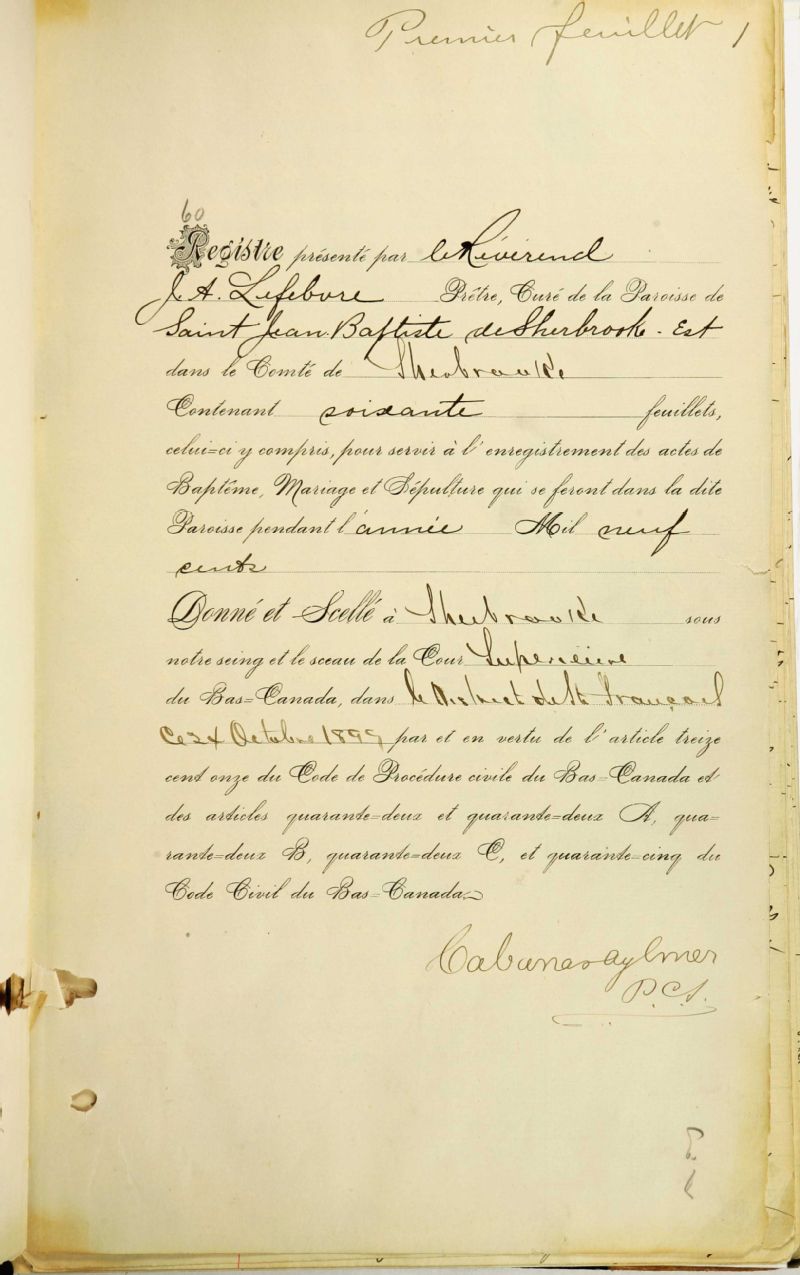 Premier feuillet 1
60
Registre présenté par le Révérend
J. A. Lefebvre Prêtre, Curé de la Paroisse de
Saint Jean-Baptiste de Sherbrooke-Est
dans le Comté de Sherbrooke
Contenant soixante feuillets,
celui=ci y compris, pour servir à l'enregistrement des actes de
Baptême, Mariage et Sépulture qui se feront dans la dite
Paroisse pendant l'année Mil neuf
cents
Donné et Scellé à Sherbrooke sous
notre seing et le sceau de la Cour Supérieure
du Bas=Canada, dans le District de St François
Ce 24 Octobre 1899 par et en vertu de l'article treize
cent onze du Code de Procédure civile du Bas=Canada et
des articles quarante=deux et quarante=deux A, qua=
rante=deux B, quarante=deux C, et quarante=cinq du
Code Civil du Bas=Canada.
Cabana & Aylmer
P.C.S.